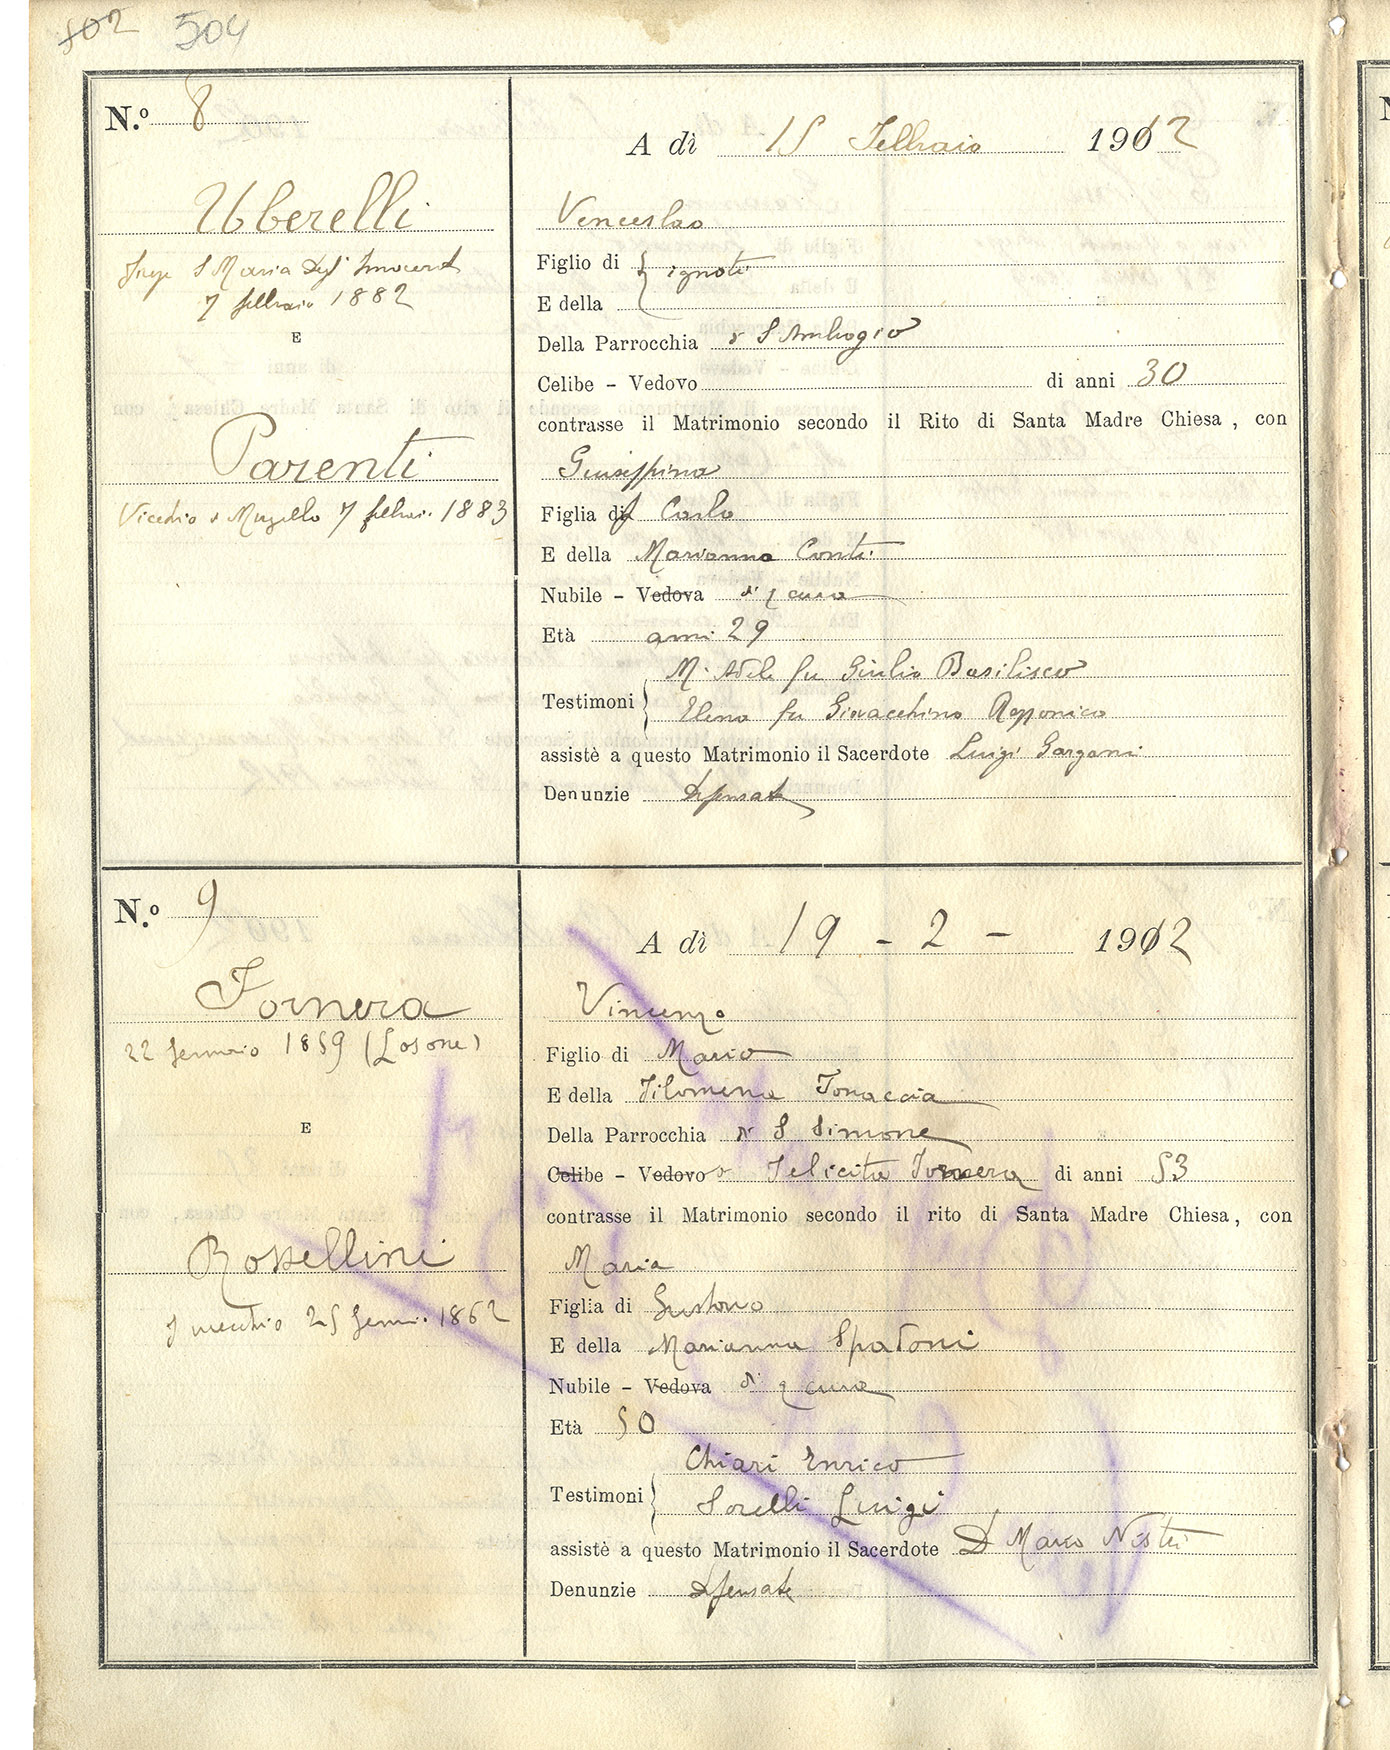 502 504
N.º 8
A dì 15 Febbraio 1912
Uberelli
S Maria degl' Innocenti
7 febbraio 1882
E
Parenti
Vicchio d Mugello 7 febbrai. 1883
Venceslao
Figlio di ignoti
E della
Della Parrocchia d S Ambrogio
Celibe - Vedovo di anni 30
contrasse il Matrimonio secondo il Rito di Santa Madre Chiesa, con
Giuseppina
Figlia di Carlo
E della Marianna Conti
Nubile - Vedova d' q cura
Età anni 29
M. Adele fu Giulio Basilisco
Testimoni
Elena fu Giovacchino
assistè a questo Matrimonio il Sacerdote Luigi Gargani
Denunzie Dispensate
N.º 9
A dì 19 - 2 - 1912
Fornera
22 Gennaio 1859 (Losone)
E
Rossellini
25 Genn. 1862
Vincenzo
Figlio di Mario
E della Filomena Fonaccia
Della Parrocchia d S Simone
Celibe - Vedovo d Felicita Fornera di anni 53
contrasse il Matrimonio secondo il rito di Santa Madre Chiesa, con
Maria
Figlia di Gustavo
E della Marianna Spadoni
Nubile - Vedova d' q cura
Età 50
Chiari Enrico
Testimoni
Sorelli Luigi
assistè a questo Matrimonio il Sacerdote D Mario Nistri
Denunzie Dispensate